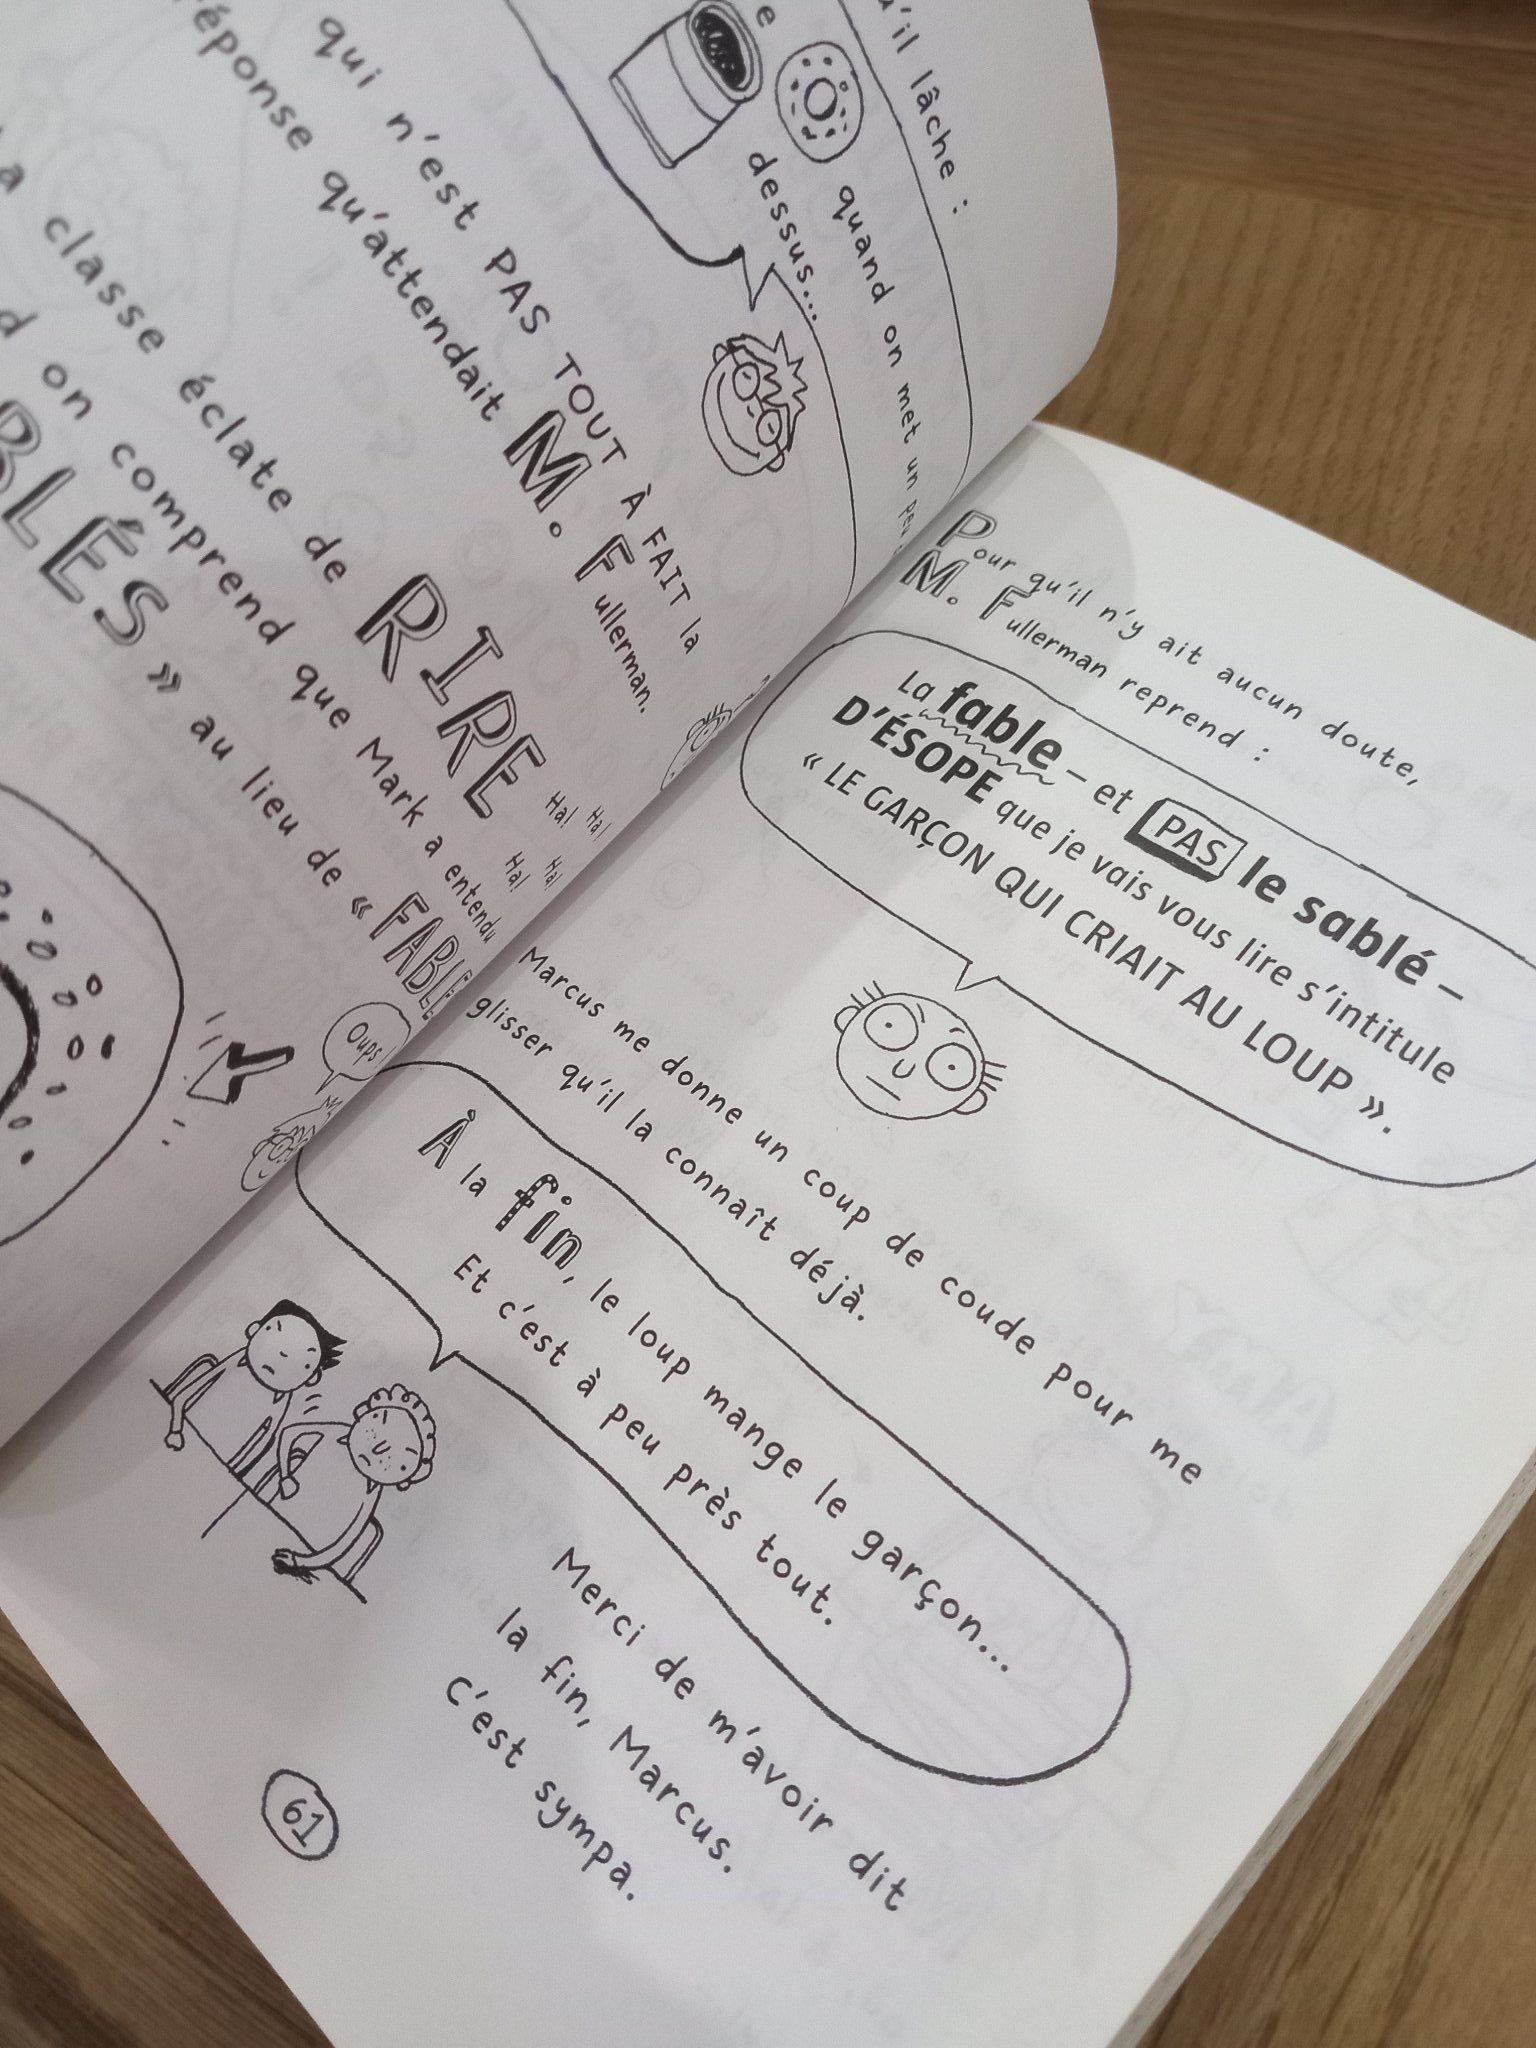 u'il lâche :
e
quand on met un peu
dessus...
qui n'est PAS TOUT À FAIT la
réponse qu'attendait M. Fullerman.
la classe éclate de RIRE
Ha! Ha!
Ha! Ha!
d on comprend que Mark a entendu
BLÉS » au lieu de « FABLE
Oups!
Pour qu'il n'y ait aucun doute,
M. Fullerman reprend :
La fable – et PAS le sablé –
D'ÉSOPE que je vais vous lire s'intitule
« LE GARÇON QUI CRIAIT AU LOUP ».
Marcus me donne un coup de coude pour me
glisser qu'il la connaît déjà.
À la fin, le loup mange le garçon...
Et c'est à peu près tout.
Merci de m'avoir dit
la fin, Marcus.
C'est sympa.
61